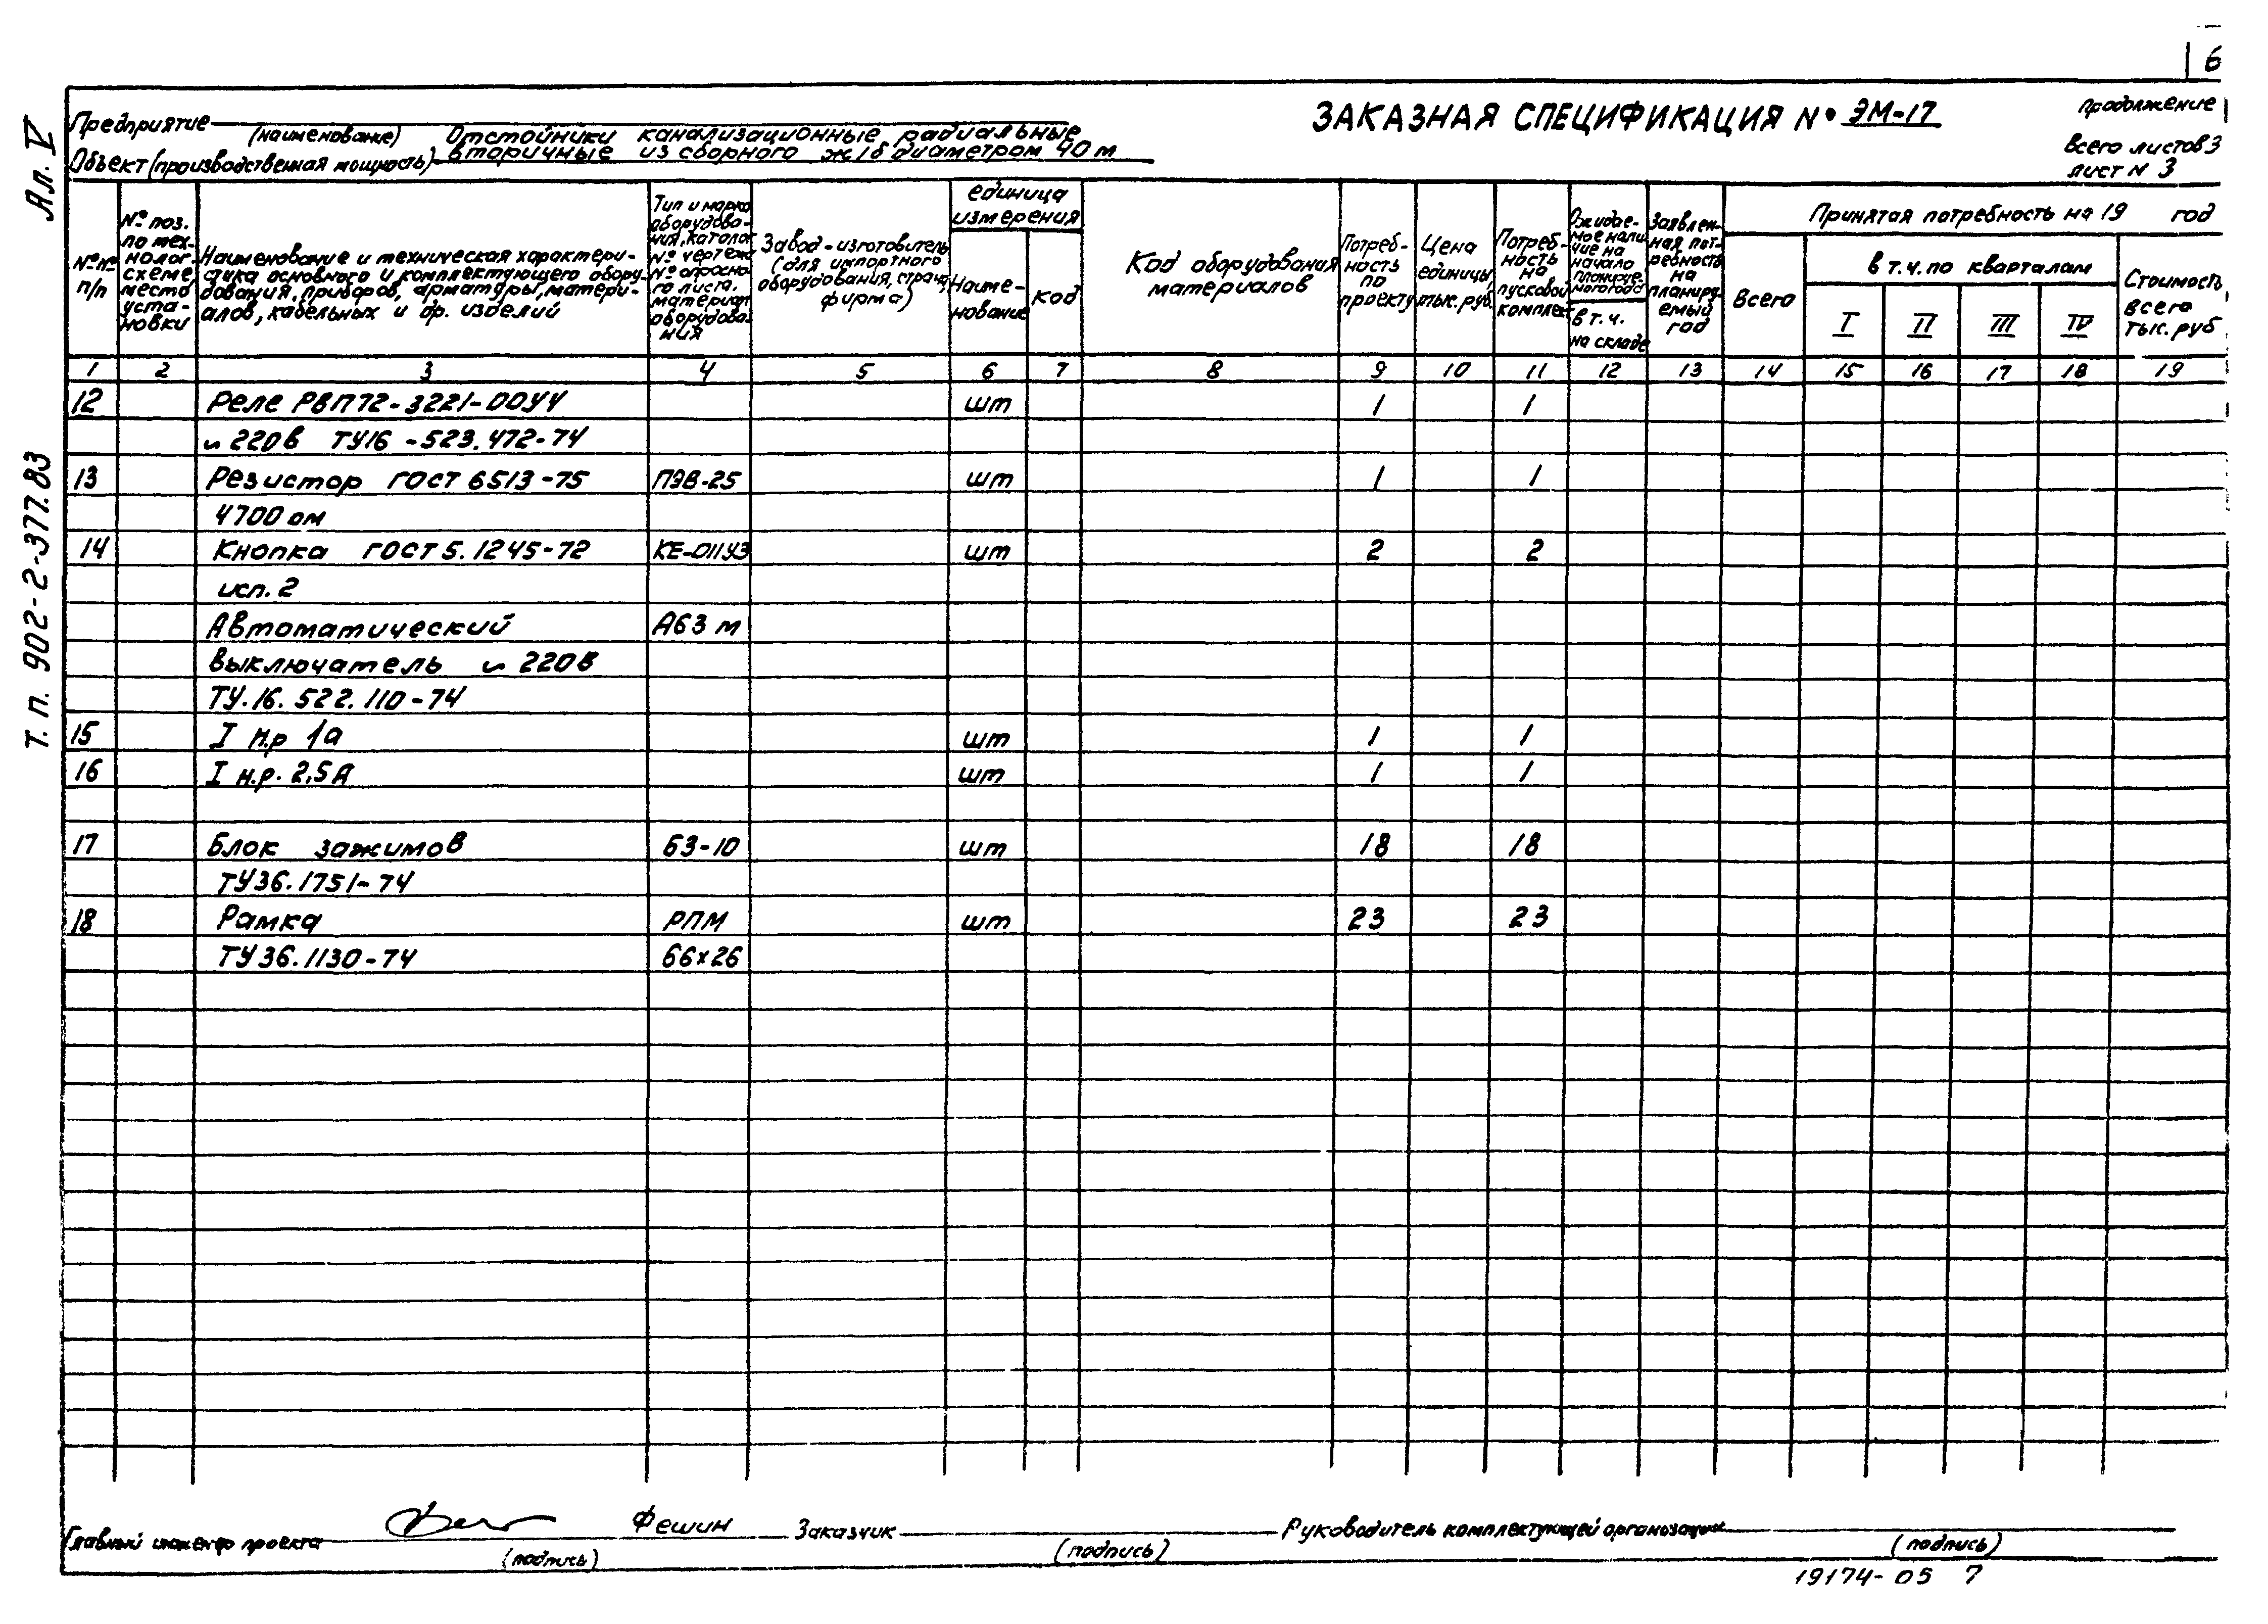 6
Ал. V
т. п. 902-2-377.83
Предприятие
(наименование)
Отстойники канализационные радиальные
Объект (производственная мощность) вторичные из сборного ж/б диаметром 40 м
ЗАКАЗНАЯ СПЕЦИФИКАЦИЯ № ЭМ-17
Продолжение
Всего листов 3
лист N 3
№№ п/п
№ поз. по технолог. схеме, место установки
Наименование и техническая характери-
стика основного и комплектующего обору-
дования, приборов, арматуры, матери-
алов, кабельных и др. изделий
Тип и марка
оборудова-
ния, каталог
№ чертежа
№ опросно-
го листа.
материал
оборудова-
ния
Завод-изготовитель
(для импортного
оборудования, страна,
фирма)
единица
измерения
Наиме-
нование
код
Код оборудования
материалов
Потреб-
ность
по
проекту
Цена
единицы,
тыс. руб.
Потреб-
ность
на
пусковой
комплекс
Ожидае-
мое нали-
чие на
начало
планируе-
мого года
в т.ч.
на складе
Заявлен-
ная пот-
ребность
на
планиру-
емый
год
Принятая потребность на 19 год
Всего
в т.ч. по кварталам
I II III IV
Стоимость
всего
тыс. руб
1 2 3 4 5 6 7 8 9 10 11 12 13 14 15 16 17 18 19
12 Реле РВП72-3221-00У4 шт 1 1
~ 220в ТУ16-523.472-74
13 Резистор ГОСТ 6513-75 ПЭВ-25 шт 1 1
4700 ом
14 Кнопка ГОСТ 5.1245-72 КЕ-011У3 шт 2 2
исп. 2
Автоматический А63 м
выключатель ~ 220в
ТУ.16.522.110-74
15 I н.р 1а шт 1 1
16 I н.р. 2,5А шт 1 1
17 Блок зажимов БЗ-10 шт 18 18
ТУ36.1751-74
18 Рамка РПМ шт 23 23
ТУ36.1130-74 66х26
Главный инженер проекта Фешин Заказчик Руководитель комплектующей организации
(подпись) (подпись) (подпись)
19174-05 7